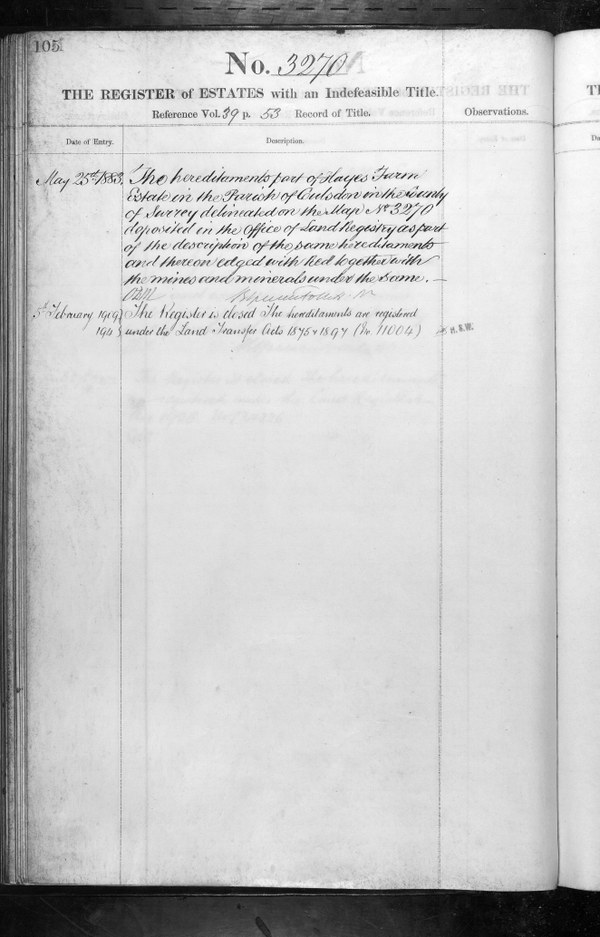 105
No. 3270
THE REGISTER of ESTATES with an Indefeasible Title.
Reference Vol. 39 p. 53 Record of Title.
Observations.
Date of Entry.
Description.
May 25th 1883.
The hereditaments part of Hayes Farm
Estate in the Parish of Coulsdon in the County
of Surrey delineated on the Map No. 3270
deposited in the Office of Land Registry as part
of the description of the same hereditaments
and thereon edged with Red together with
the mines and minerals under the same.
5th February 1919
The Register is closed The hereditaments are registered
under the Land Transfer Acts 1875 & 1897 (No. 11004)
H. & W.